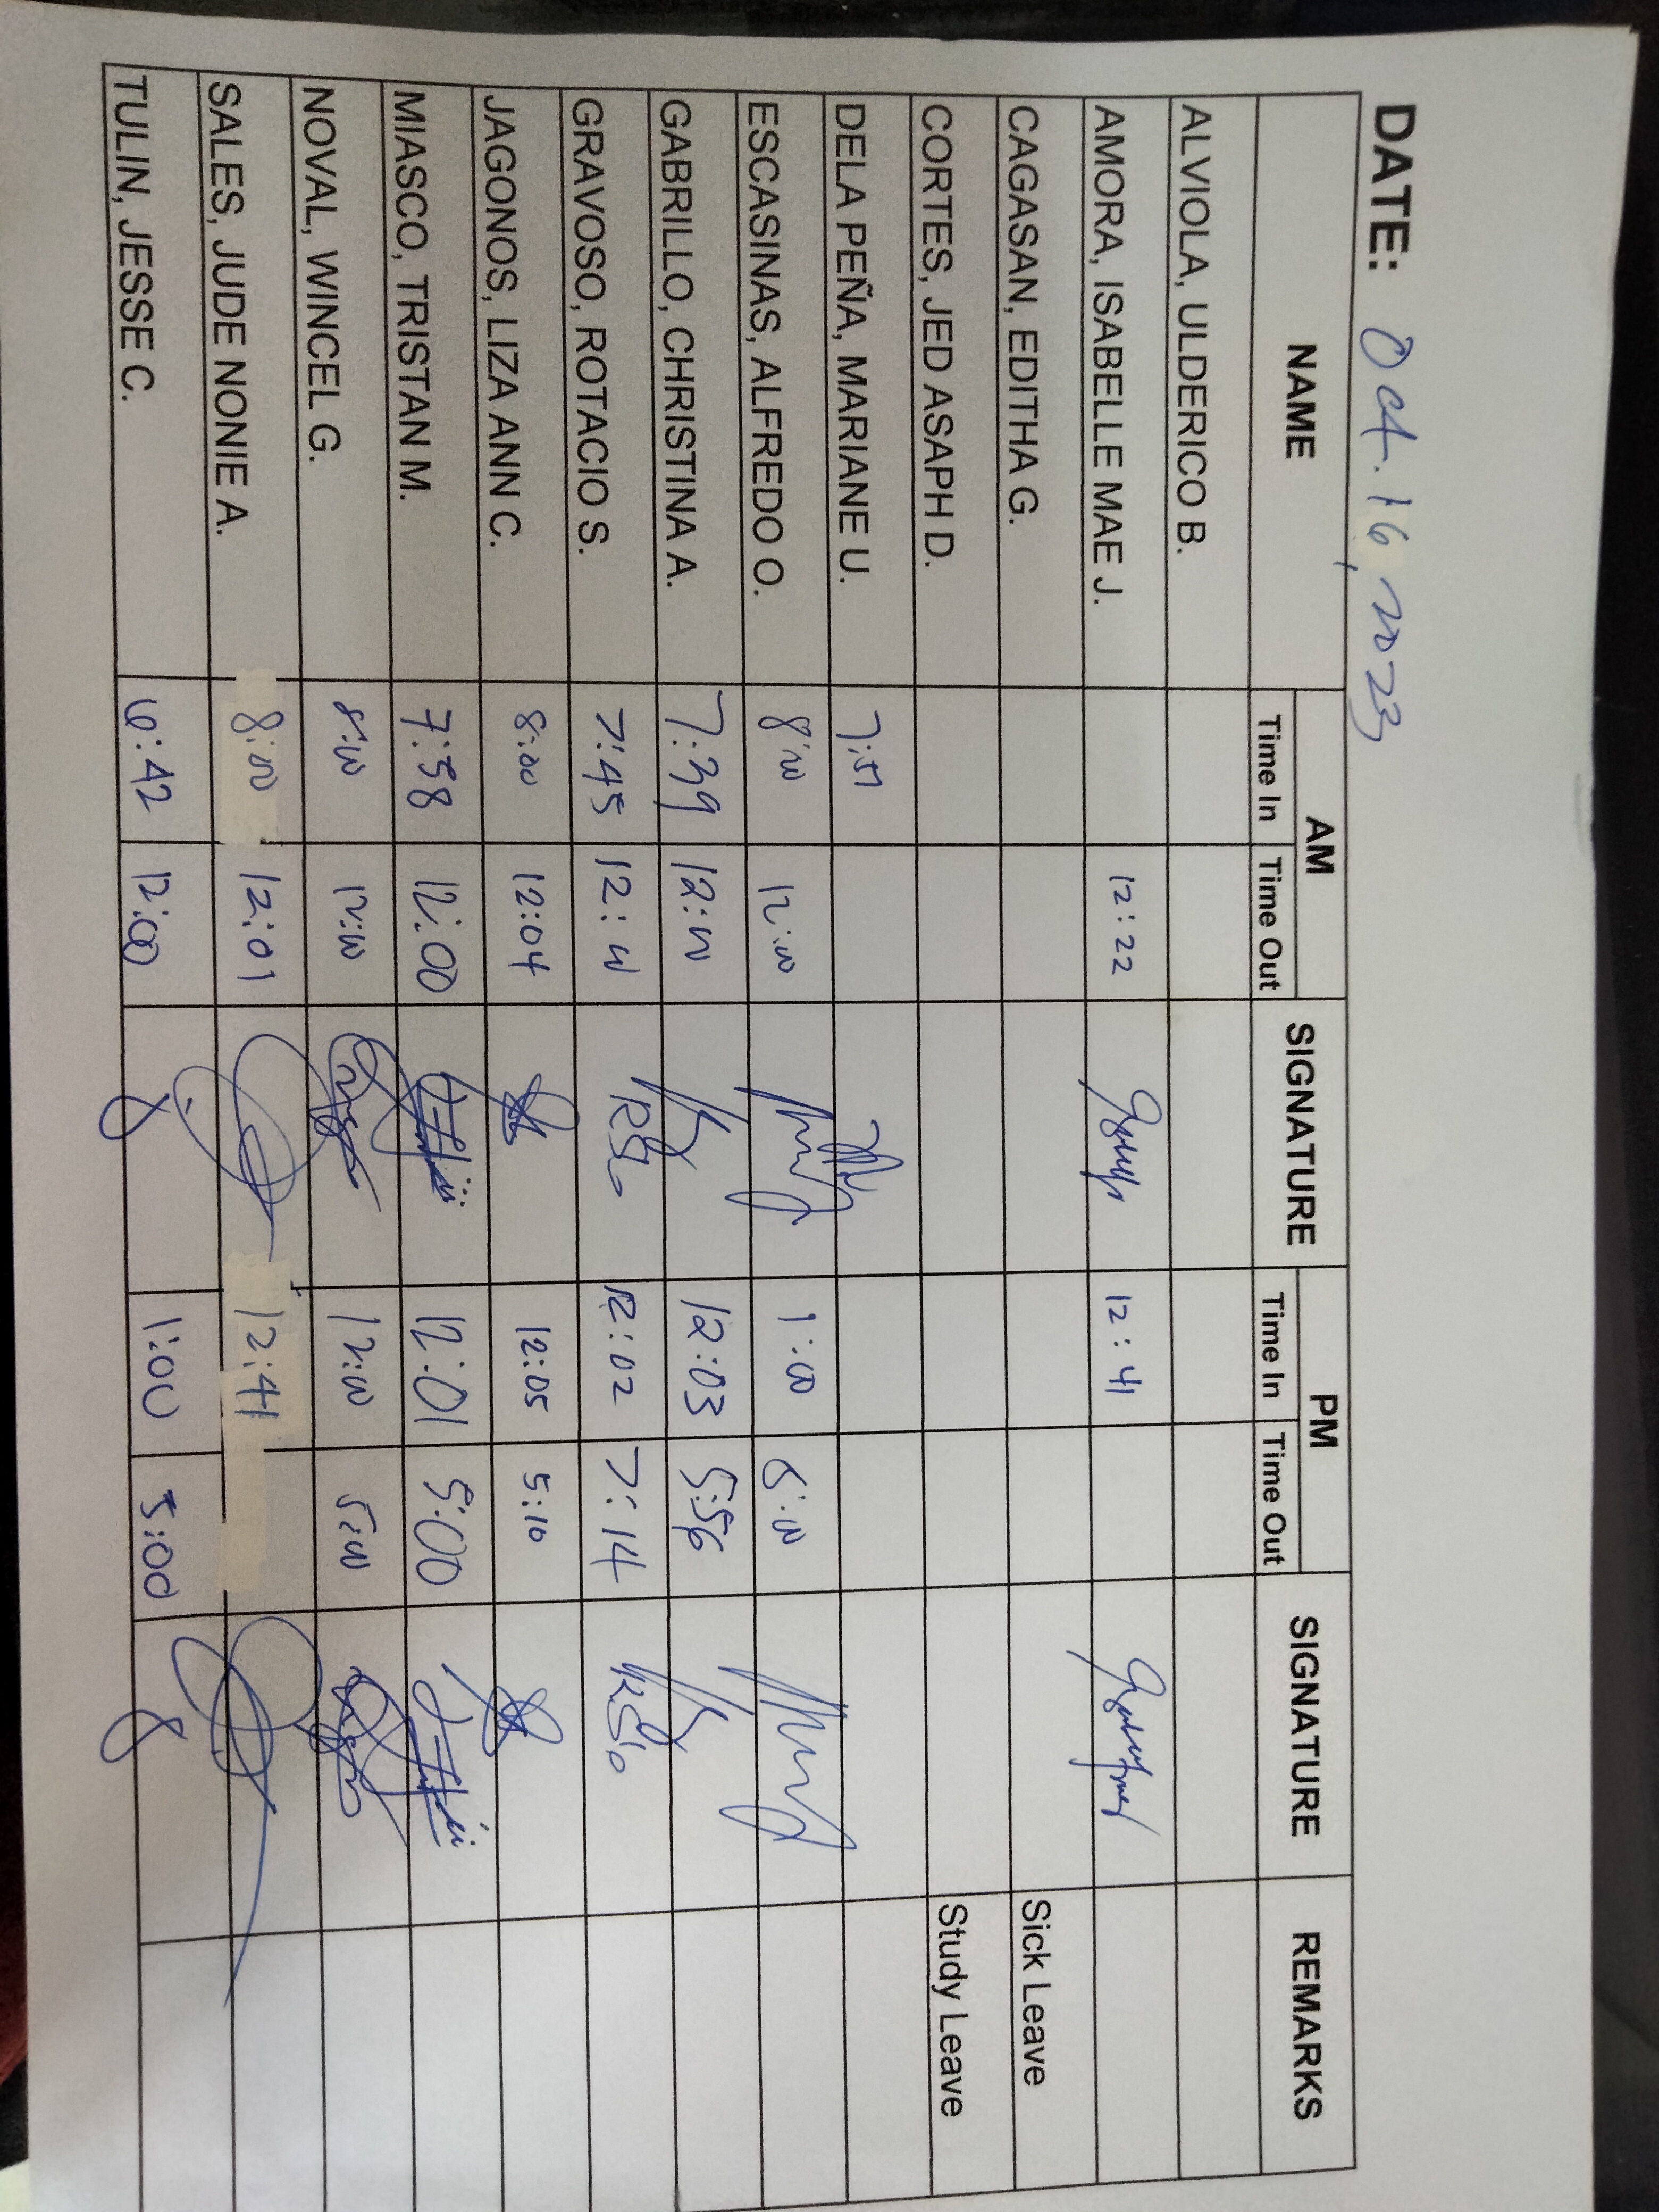 DATE: Oct. 16, 2023
NAME AM SIGNATURE PM SIGNATURE REMARKS
Time In Time Out Time In Time Out
ALVIOLA, ULDERICO B.
AMORA, ISABELLE MAE J. 12:22 12:41
CAGASAN, EDITHA G. Sick Leave
CORTES, JED ASAPH D. Study Leave
DELA PEÑA, MARIANE U.
ESCASINAS, ALFREDO O. 8:00 12:00 1:00
GABRILLO, CHRISTINA A. 7:39 12:00 12:03 5:56
GRAVOSO, ROTACIO S. 7:45 12:00 12:02 7:14
JAGONOS, LIZA ANN C. 8:00 12:04 12:05 5:10
MIASCO, TRISTAN M. 7:58 12:00 12:01 5:00
NOVAL, WINCEL G. 8:00 12:00 12:00 5:00
SALES, JUDE NONIE A. 8:00 12:01 12:41
TULIN, JESSE C. 6:42 12:00 1:00 5:00